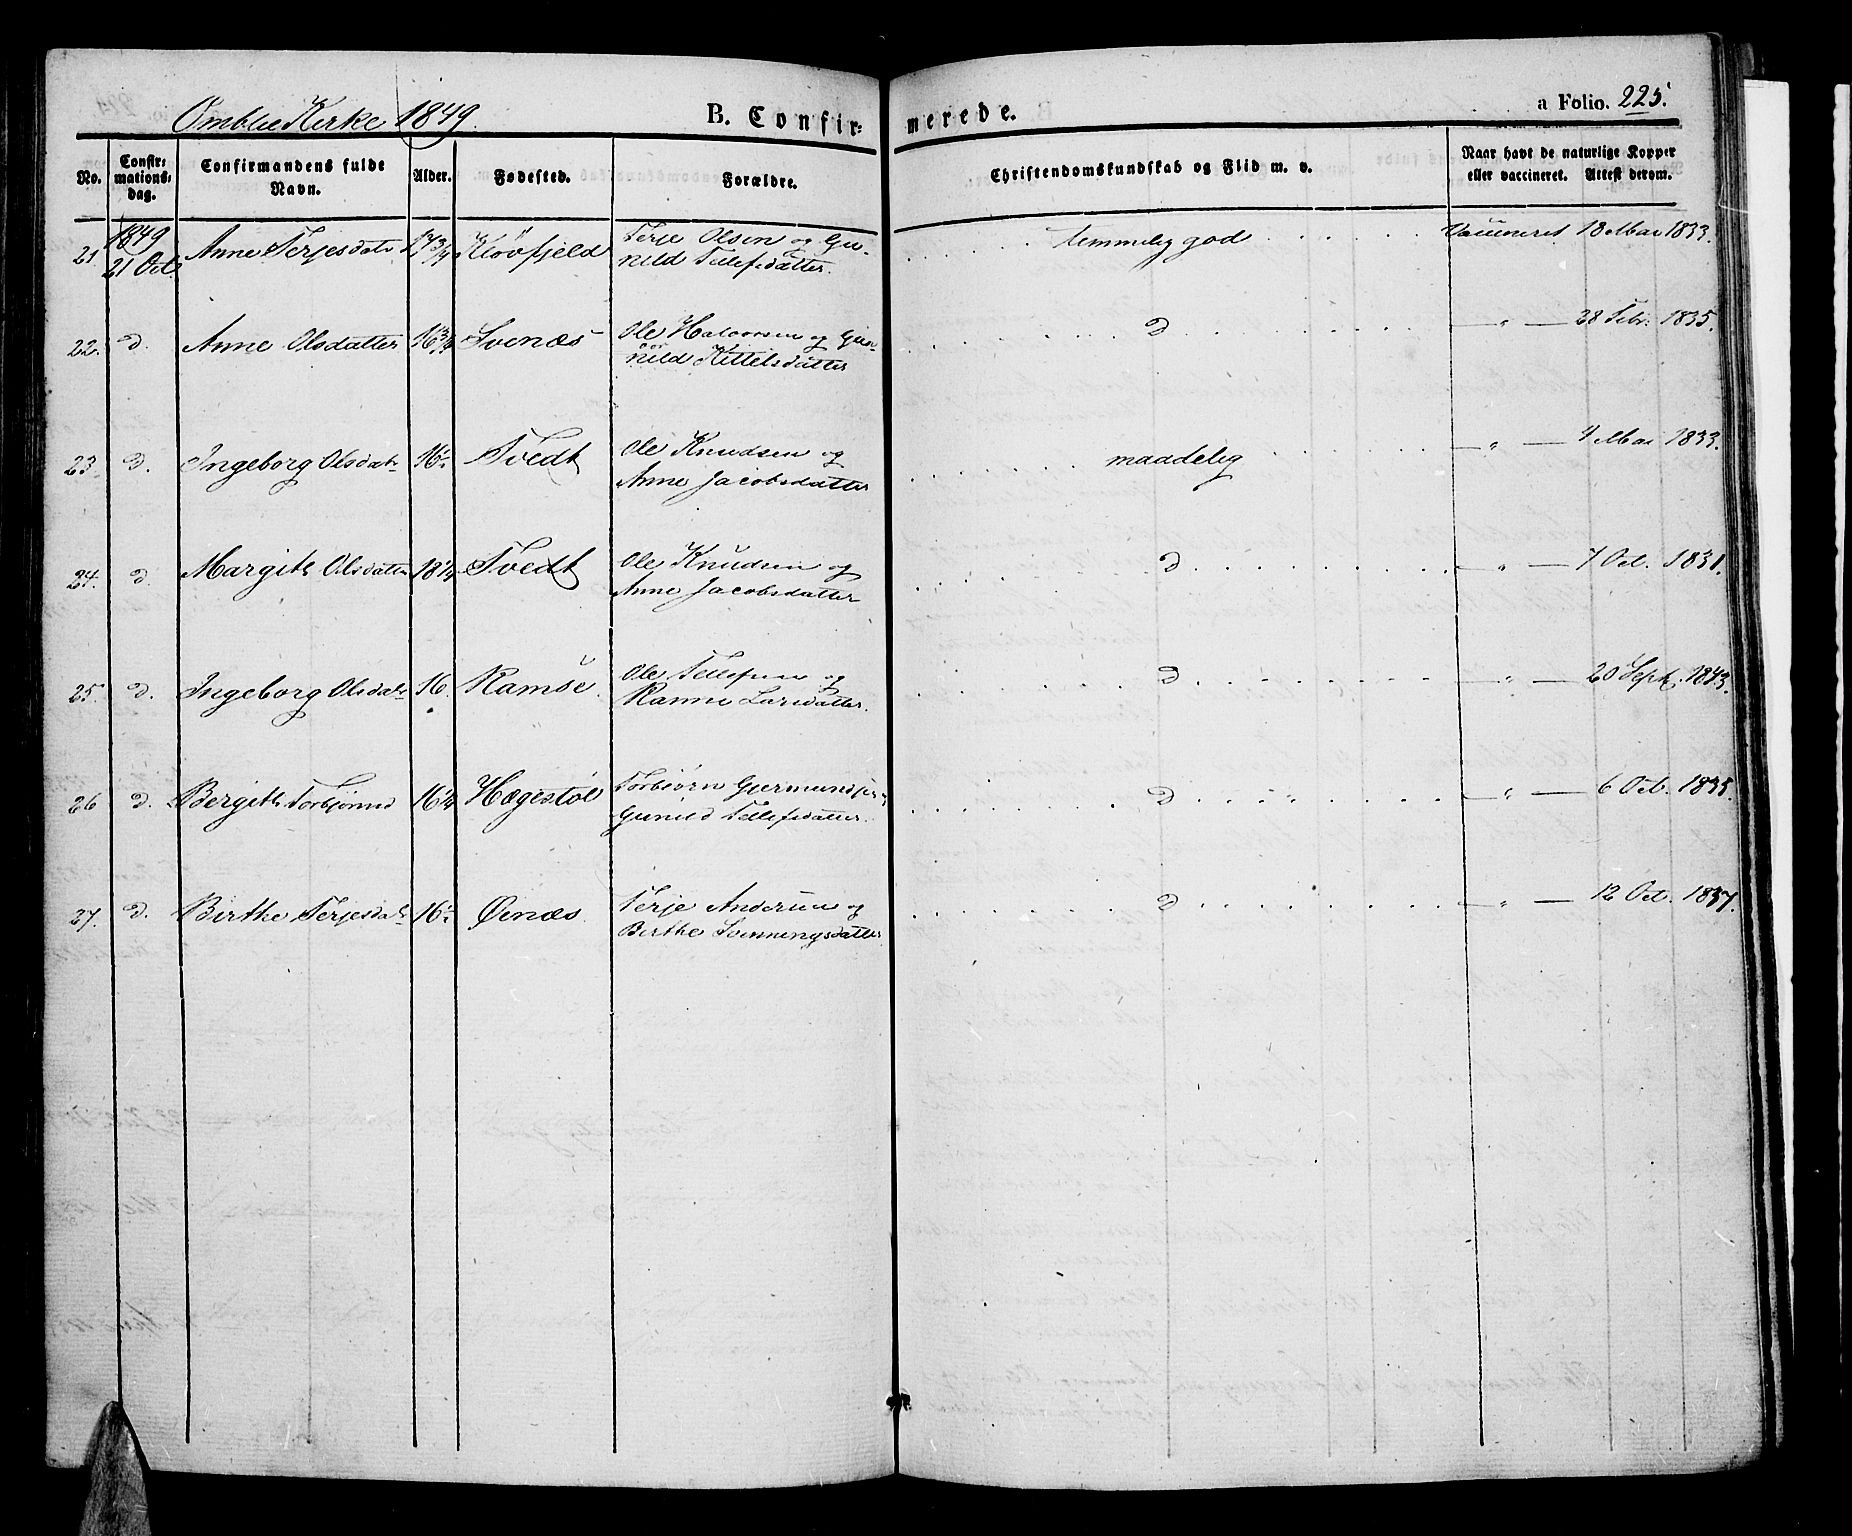 Omblie Kirke 1849. B. Confirmerede. a Folio. 225.
No. Confirmationsdag. Confirmandens fulde Navn. Alder. Fødested. Forældre. Christendomskundskab og Flid m. v. Naar havt de naturlige Kopper eller vaccineret. Attest derom.
21. 1849 21 Oct. Anne Terjesdatr 17 3/4 Kløvfjeld Terje Olsen og Gunild Tellefsdatter. temmelig god Vaccineret 18 Mai 1833.
22. d. Anne Olsdatter 16 3/4 Svenæs Ole Halvorsen og Gunild Kittelsdatter d " 28 Febr. 1835.
23. d. Ingeborg Olsdatr 16 Tvedt Ole Knudsen og Anne Jacobsdatter maadelig " 4 Mai 1833.
24. d. Margith Olsdatter 18 1/4 Tvedt Ole Knudsen og Anne Jacobsdatter d " 7 Oct. 1831.
25. d. Ingeborg Olsdatr 16. Ramse Ole Tellefsen og Ranne Larsdatter. d " 20 Sept. 1843.
26 d. Bergith Torbjørnsd 16 1/4 Hægestøl Torbjørn Gjermundsen Gunild Tellefsdatter. d " 6 Oct. 1835.
27. d. Birthe Terjesdatr 16 Øenæs. Terje Andersen og Birthe Svenningsdatter d " 12 Oct. 1837.